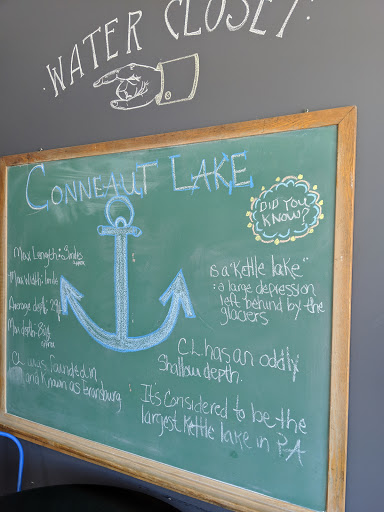 WATER CLOSET
CONNEAUT LAKE
DID YOU
KNOW?
Max Length:
Max Width: 1mile
Average depth
Max depth:
CL was founded in
and known as Evansburg
is a "kettle lake"
: a large depression
left behind by the
glaciers
CL has an oddly
shallow depth.
It's considered to be the
largest kettle lake in PA